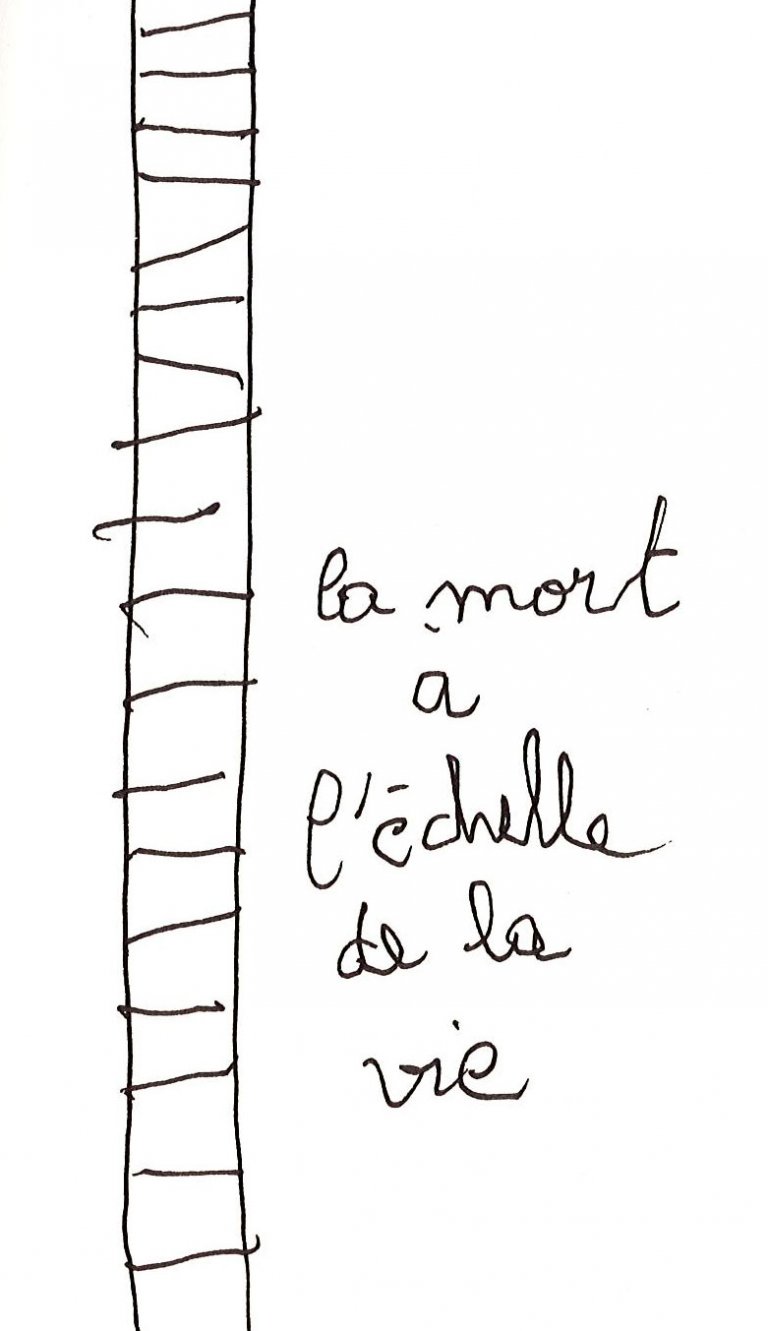 la mort
a
l'échelle
de la
vie